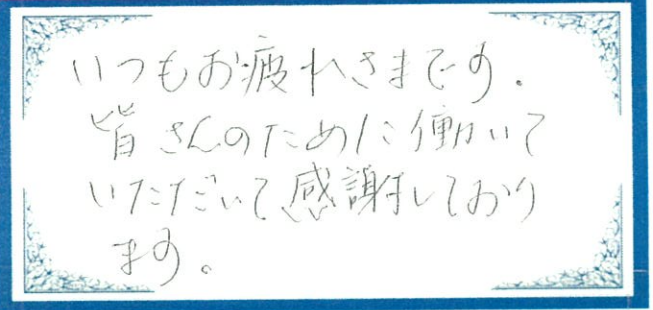 いつもお疲れさまです。
皆さんのために働いて
いただいて感謝しており
ます。